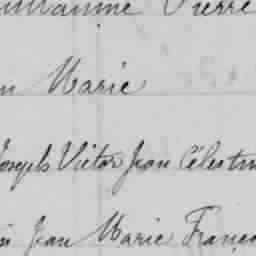 Guillaume Pierre
Marie
Joseph Victor Jean Célestin
Jean Marie Franço